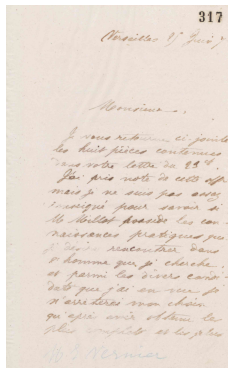 317
Versailles
Monsieur,
Je vous retourne ci joint
les huit pièces contenues
dans votre lettre du 23 ct
J'ai pris note de cette offre
mais je ne suis pas assez
renseigné pour savoir si
M. Millot possède les con
naissances pratiques que
je désire rencontrer dans
l'homme que je cherche
et parmi les divers candi
dats que j'ai en vue je
n'arrêterai mon choix
qu'après avoir obtenu le
plus et les plus